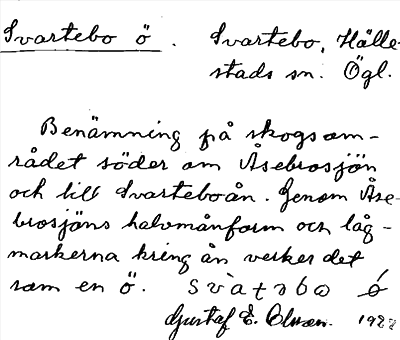 Svartebo ö. Svartebo, Hälle-
stads sn. Ögl.
Benämning på skogsom-
rådet söder om Åsebrosjön
och till Svarteboån. Genom Åse-
brosjöns halvmånform och låg-
markerna kring ån verkar det
som en ö.
Gustaf E. Olsson.